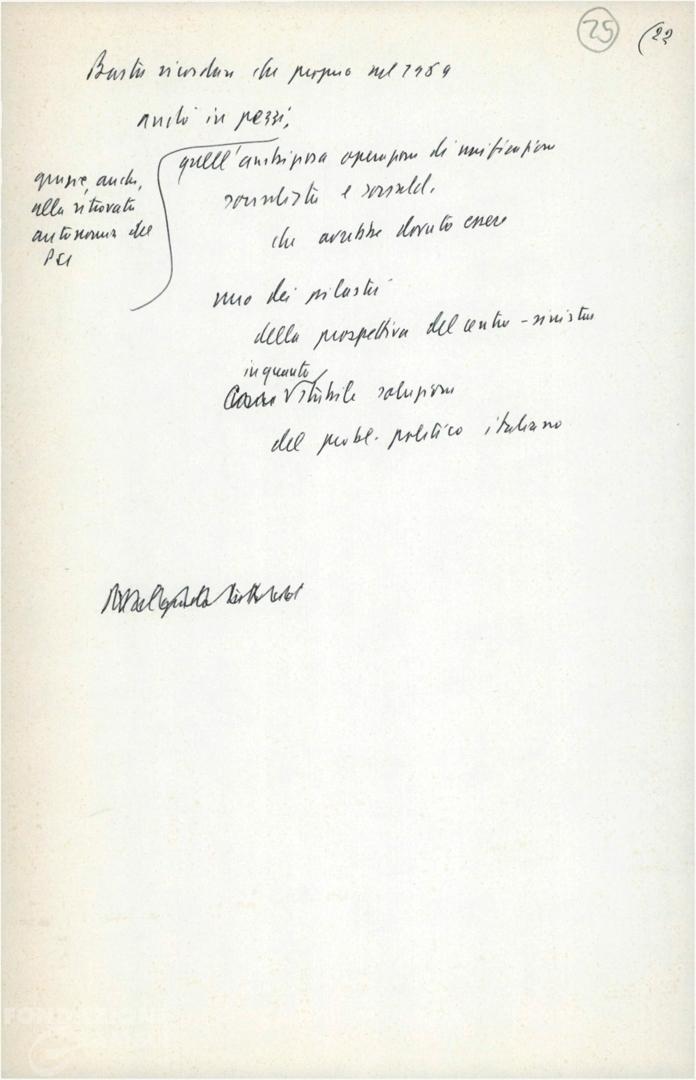 25
(22
Basta ricordare che proprio nel 1969
andò in pezzi,
grazie, anche,
alla ritrovata
autonomia del
PCI
quell'ambigua operazione di unificazione
socialista e sociald.
che avrebbe dovuto essere
uno dei pilastri
della prospettiva del centro-sinistra
in quanto
stabile soluzione
del probl. politico italiano
FONDAZIONE